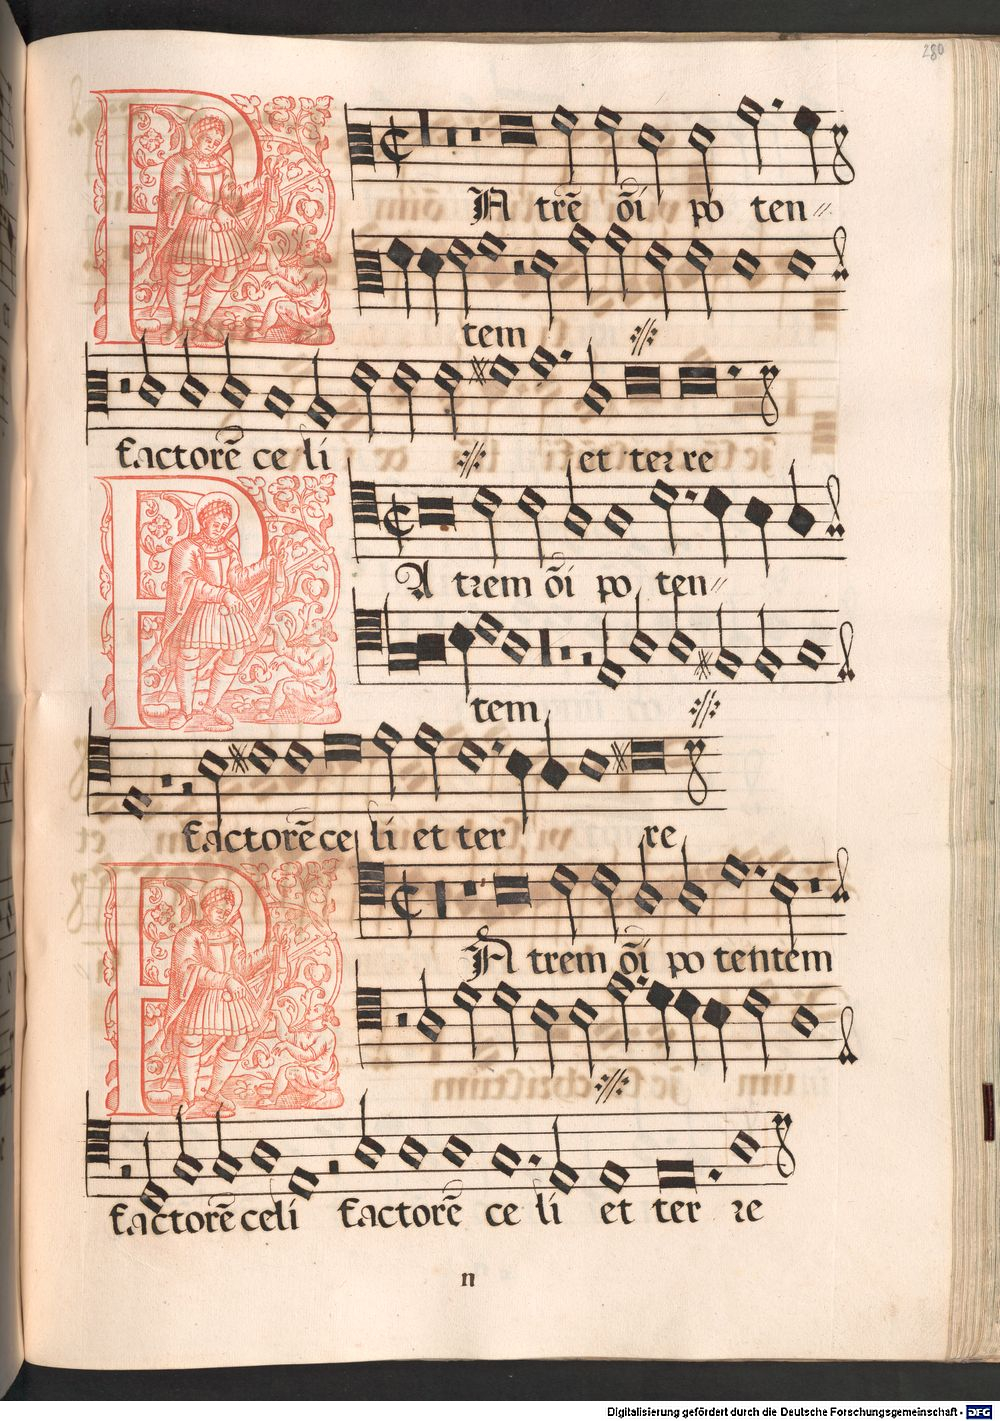 280
PAtrē oī̄ po ten
tem
factorē celi et terre
PAtrem oī̄ po ten
tem
factorē celi et ter re
PAtrem oī̄ potentem
factorē celi factorē celi et ter re
n
Digitalisierung gefördert durch die Deutsche Forschungsgemeinschaft - DFG